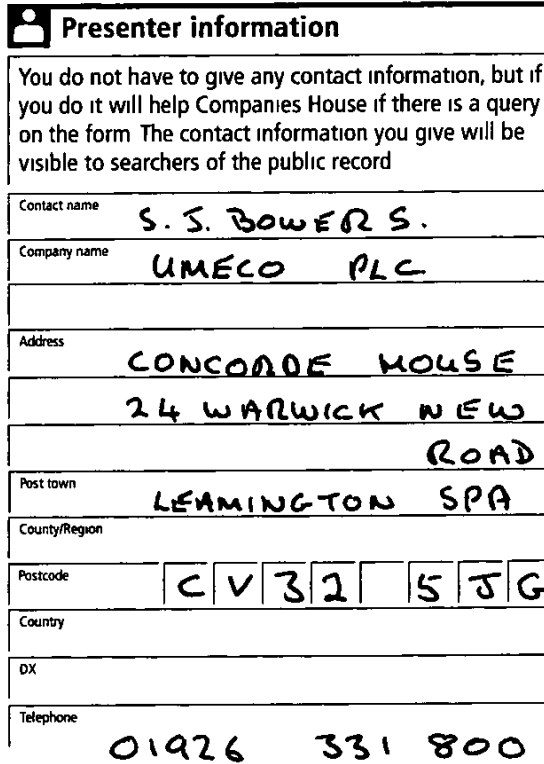 Presenter information
You do not have to give any contact information, but if
you do it will help Companies House if there is a query
on the form The contact information you give will be
visible to searchers of the public record
Contact name S. J. BOWERS.
Company name UMECO PLC
Address CONCORDE HOUSE
24 WARWICK NEW
ROAD
Post town LEAMINGTON SPA
County/Region
Postcode CV32 5JG
Country
DX
Telephone 01926 331 800